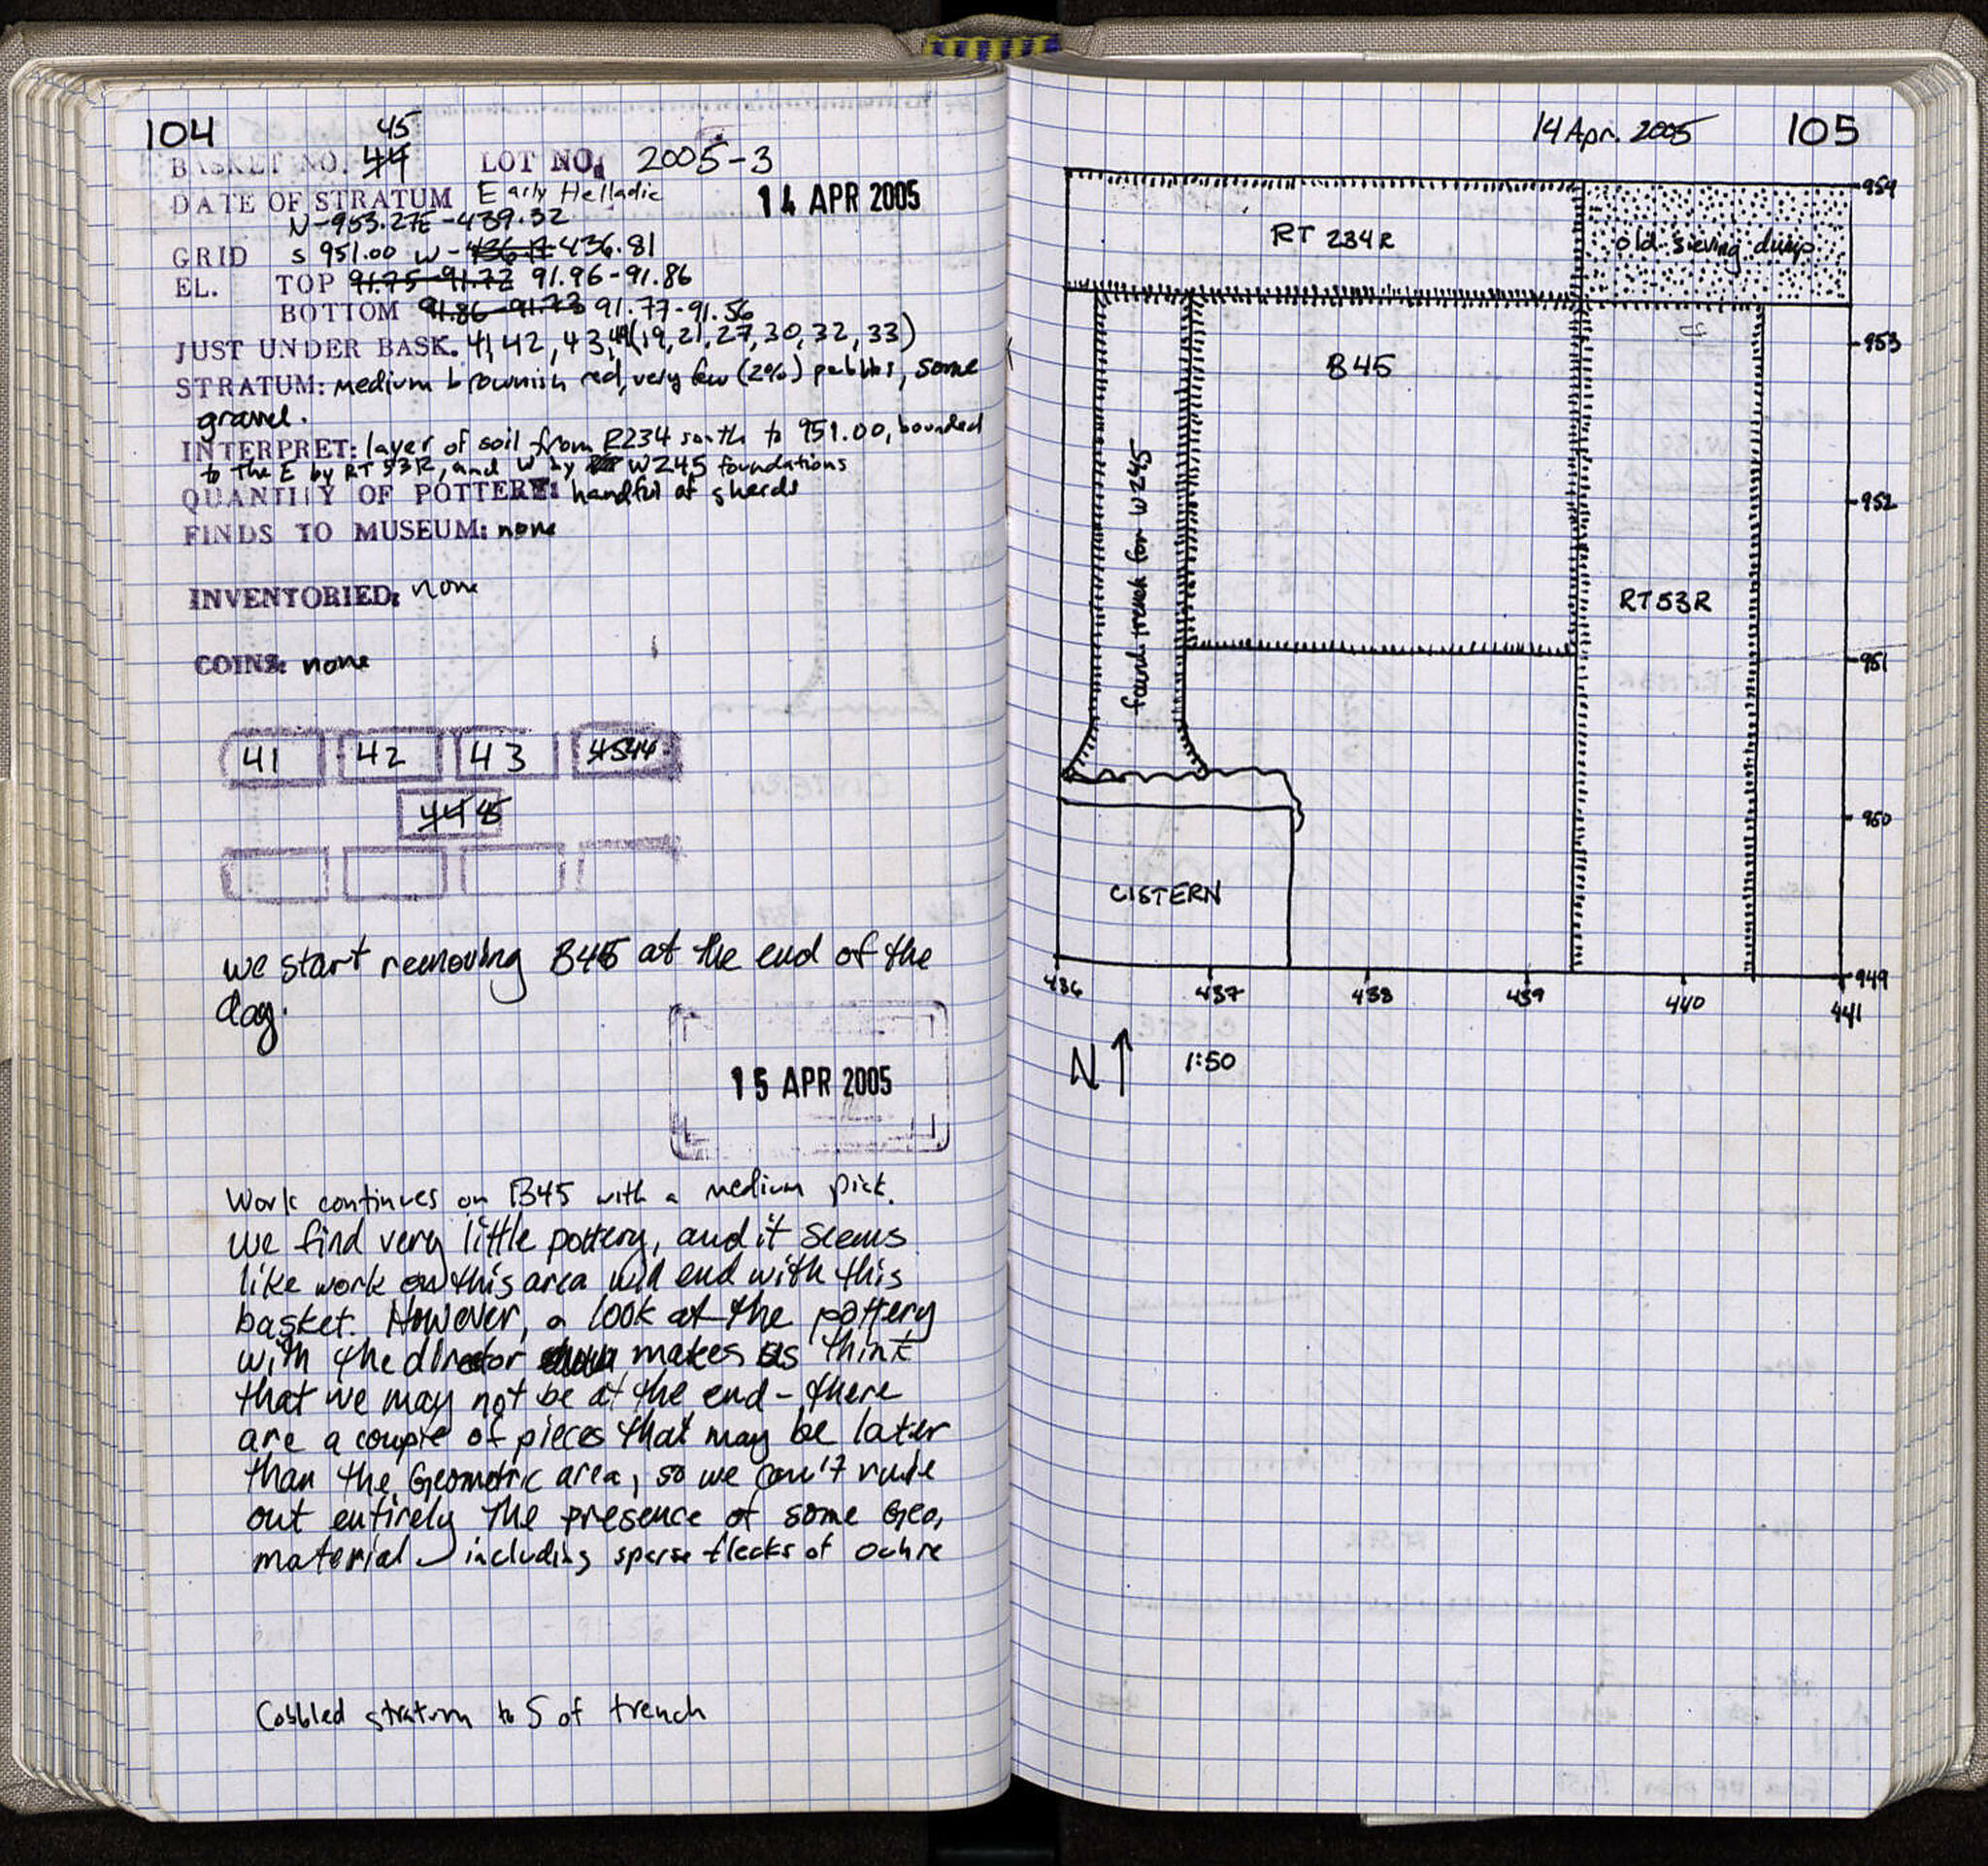 104
45
BASKET NO. 44 LOT NO. 2005-3
DATE OF STRATUM Early Helladic
14 APR 2005
N-953.27 E-439.32
GRID S 951.00 W-436.17 436.81
EL. TOP 91.75-91.72 91.96-91.86
BOTTOM 91.86-91.73 91.77-91.56
JUST UNDER BASK. 41, 42, 43, 44 (19, 21, 27, 30, 32, 33)
STRATUM: medium brownish red, very few (2%) pebbles, some
gravel.
INTERPRET: layer of soil from R234 south to 951.00, bounded
to the E by RT 53R, and W by W245 foundations
QUANTITY OF POTTERY: handful of sherds
FINDS TO MUSEUM: none
INVENTORIED: none
COINS: none
41 42 43 45 44
44 45
we start removing B45 at the end of the
day.
15 APR 2005
Work continues on B45 with a medium pick.
we find very little pottery, and it seems
like work on this area will end with this
basket. However, a look at the pottery
with the director makes us think
that we may not be at the end - there
are a couple of pieces that may be later
than the Geometric area, so we can't rule
out entirely the presence of some Geo.
material - including sparse flecks of ochre
Cobbled stratum to S of trench
14 Apr. 2005 105
954
RT 234R
old sieving dump
953
B45
952
found. trench for W245
RT53R
951
950
CISTERN
949
436 437 438 439 440 441
N 1:50